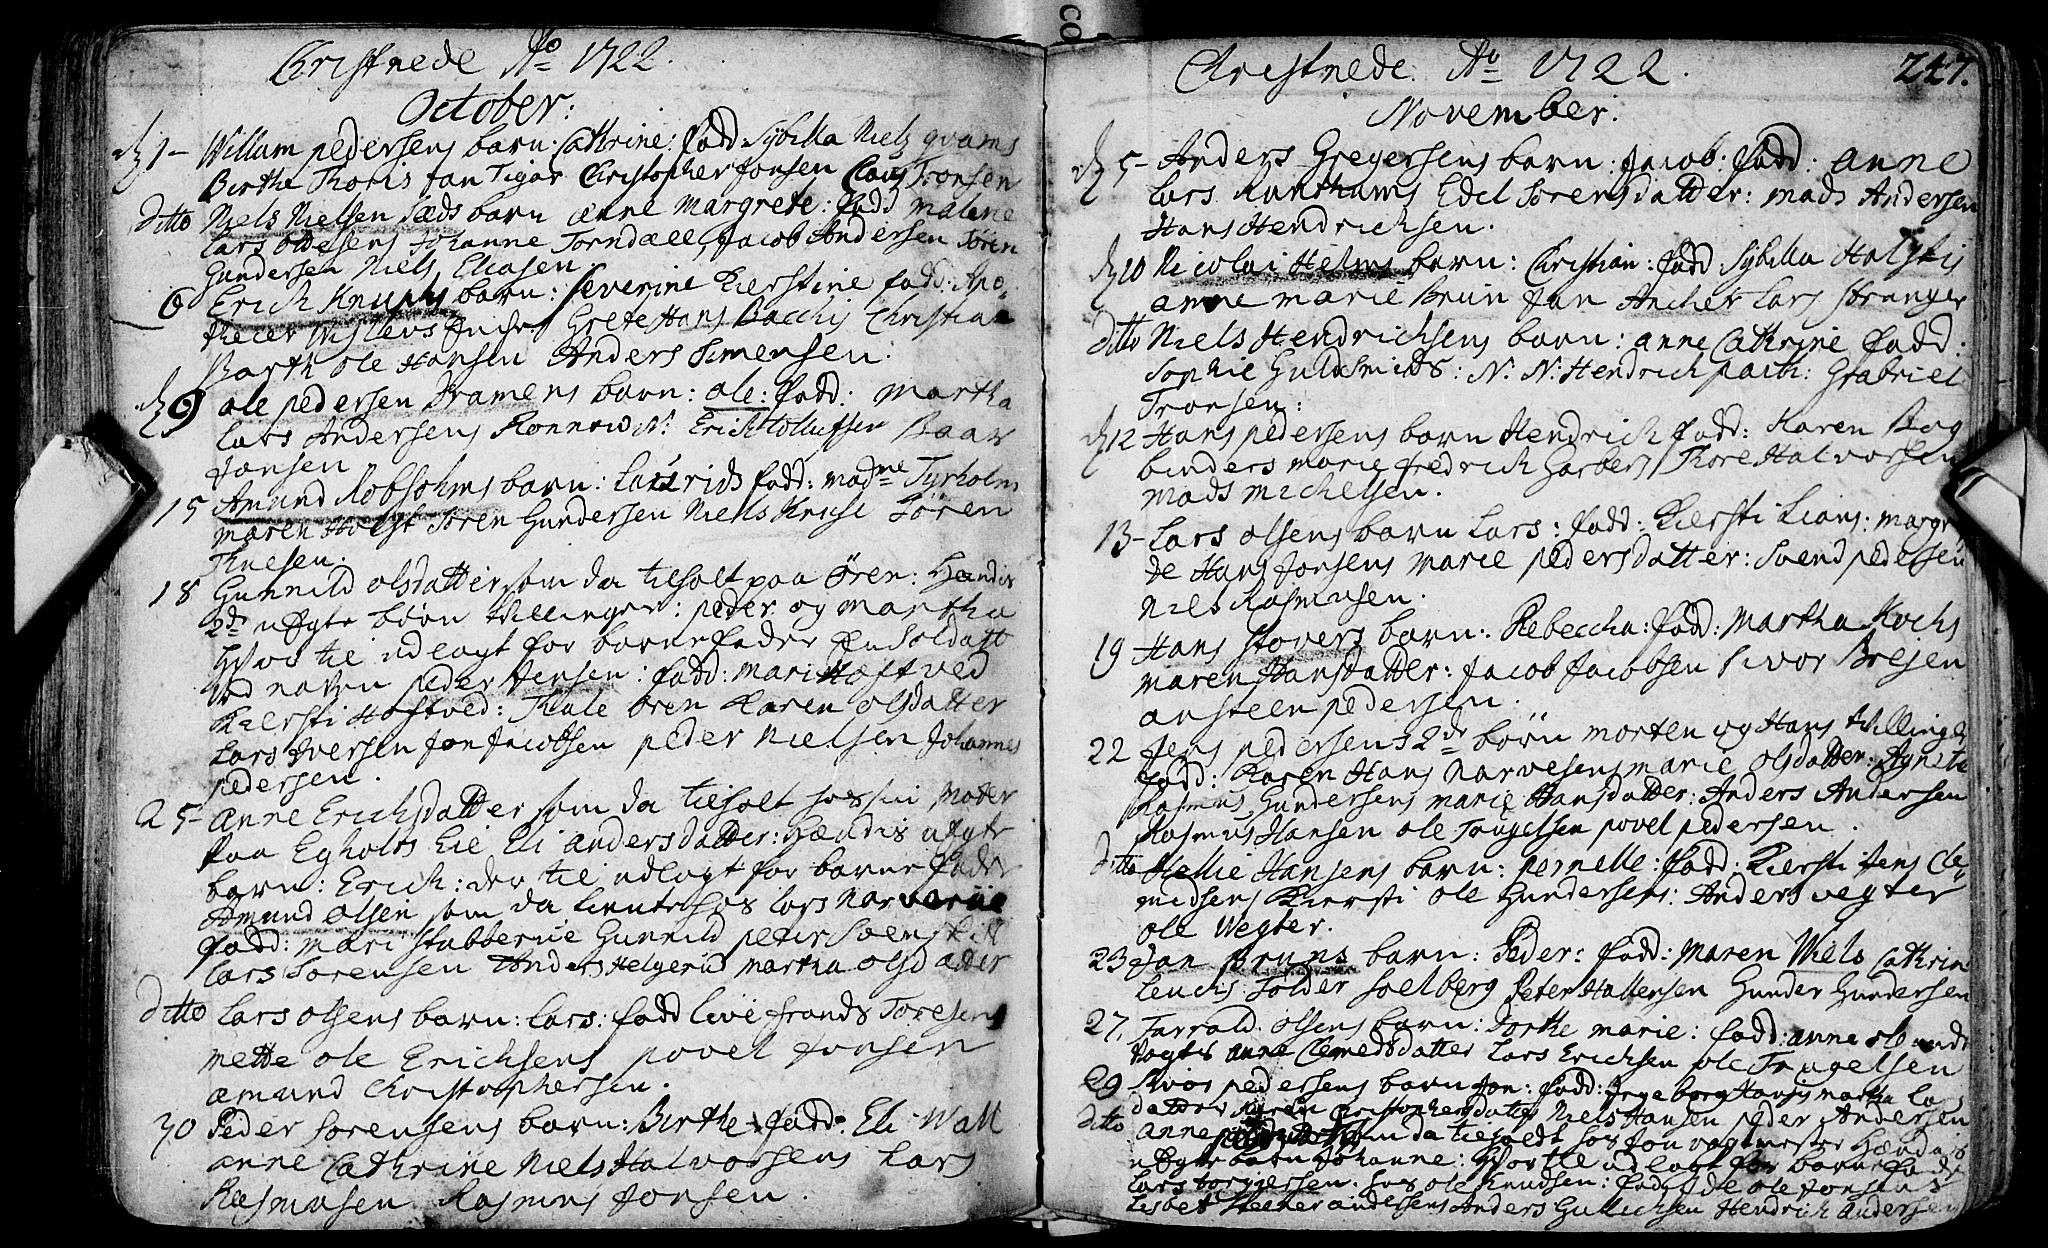 Christnede Ao 1722.
October:
d 1- Willum pedersens barn: Cathrine: fadd Sybilla Niels qvams
Birthe Thoris Jan Tigar Christopher Jonsen Claus Tronsen
ditto Niels Nielsen Sæds barn anne margrete: fadd malene
Lars ottesens Johanne Torndæll, Jacob Andersen Søren
Gundersen Niels Eliasen.
6 Erich Knuphs barn: Severine Kierstine fadd: Apo-
theker Grete Hans Bacchis Christian
Barth ole Hansen Anders Simensen.
d 9 ole pedersen Kramers barn: ole: fadd: Martha
Lars Andersens Ronnow N: Erich olluffsen Baar
Jonsen
15 Amund Robsohms barn: Lauride fadd: madme Tyrholm
maren Holst Søren Gundersen Niels Kruse Søren
Knusen.
18 Gunnild olsdatter som da tilholt paa Ören: Hændis
2de uægte børn tvillinger: peder og martha
hvor til udlagt for barnefader En Soldatt
ved nafn peder Jensen: fadd: mari Hæftved
Kiersti Hæftved: Thale ören Karen olsdatter
Lars Iversen Jon Jacobsen peder Nielsen Johannes
pedersen.
25- Anne Erichsdatter som da tilholt hos sin Moder
paa Egholts Eie Eli andersdatter: Hændis uægte
barn: Erich: der til udlagt for barne fader
Amund olsen som da tiente hos Lars Narverüe
fadd: mari stubberüe Gunnild peter Svenskis
Lars Sorensen Anders Helgerud martha olsdatter
Ditto Lars olsens barn: Lars: fadd live frands Toresens
mette ole Erichsens povel Jonsen
amund Christophersen.
30 Peder Sorensens barn: Birthe: fadd: Eli Wall
anne Cathrine Niels Halvorsens Lars
Rasmusen Rasmus Jonsen.
Christnede Ao 1722. 247.
November:
d 5- Anders Gregersens barn: Jacob: fadd: anne
Lars Runthums Edel Sorensdatter: mads Andersen
Hans Hendrichsen.
d 10 Nicolai Helms barn: Christian: fadd Sybilla Holstis
anne marie Brun Jan Ancher Lars Stranger
ditto Niels Hendrichsens barn: anne Cathrine fadd:
Sophie Guldsmids: N. N: Hendrich path: Grabriel
Tronsen:
d 12 Hans pedersens barn Hendrich fadd: Karen Bog
binders marie fredrich Garbers Thore Halvorsen
mads michelsen.
13- Lars olsens barn Lars: fadd: Kiersti Lians: margre
de Hans Jonsens marie pedersdatter: Svend pedersen
Niels Rasmusen.
19 Hans Stovers barn: Rebeccha: fadd: Martha Kochs
maren Hansdatter: Jacob Jacobsen Sivor Brejen
ansteen pedersen.
22 Jens pedersens 2de börn morten og Hans tvillinger
fadd: Karen Hans Narvesens marie olsdatter: Agnete
Rasmus Gundersens marie Hansdatter: Anders Andersen
Rasmus Hansen ole Tougelsen povel pedersen.
ditto Hellie Hansens barn: pernelle: fadd: Kiersti Jens Cle-
midsens Kiersti ole Gundersens: Anders vegter
ole Wegter.
23 Jan Bruns barn: Peder: fadd: Maren Niels Cathrin
Leuchs Tolder Soelberg Peter Hallensen Gunder Gundersen
27, Tarrald olsens barn: Dorthe marie: fadd: anne
fogts anne Clemedsdatter Lars Erichsen ole Trugelsen
29 Sivor pedersens barn Jon: fadd: Ingeborg Hansis martha Lars
datter Karen Christophersdatter Niels Hansen peder Andersen
ditto anne som da tilholdt hos Jon vagtmester Hændis
uægte barn Johanne: hvor til udlagt for barne fader
Lars torgersen hos ole Knudsen: fadd Ide ole Jonsens
Lisbet andersens Anders Gullichsen Hendrich Andersen